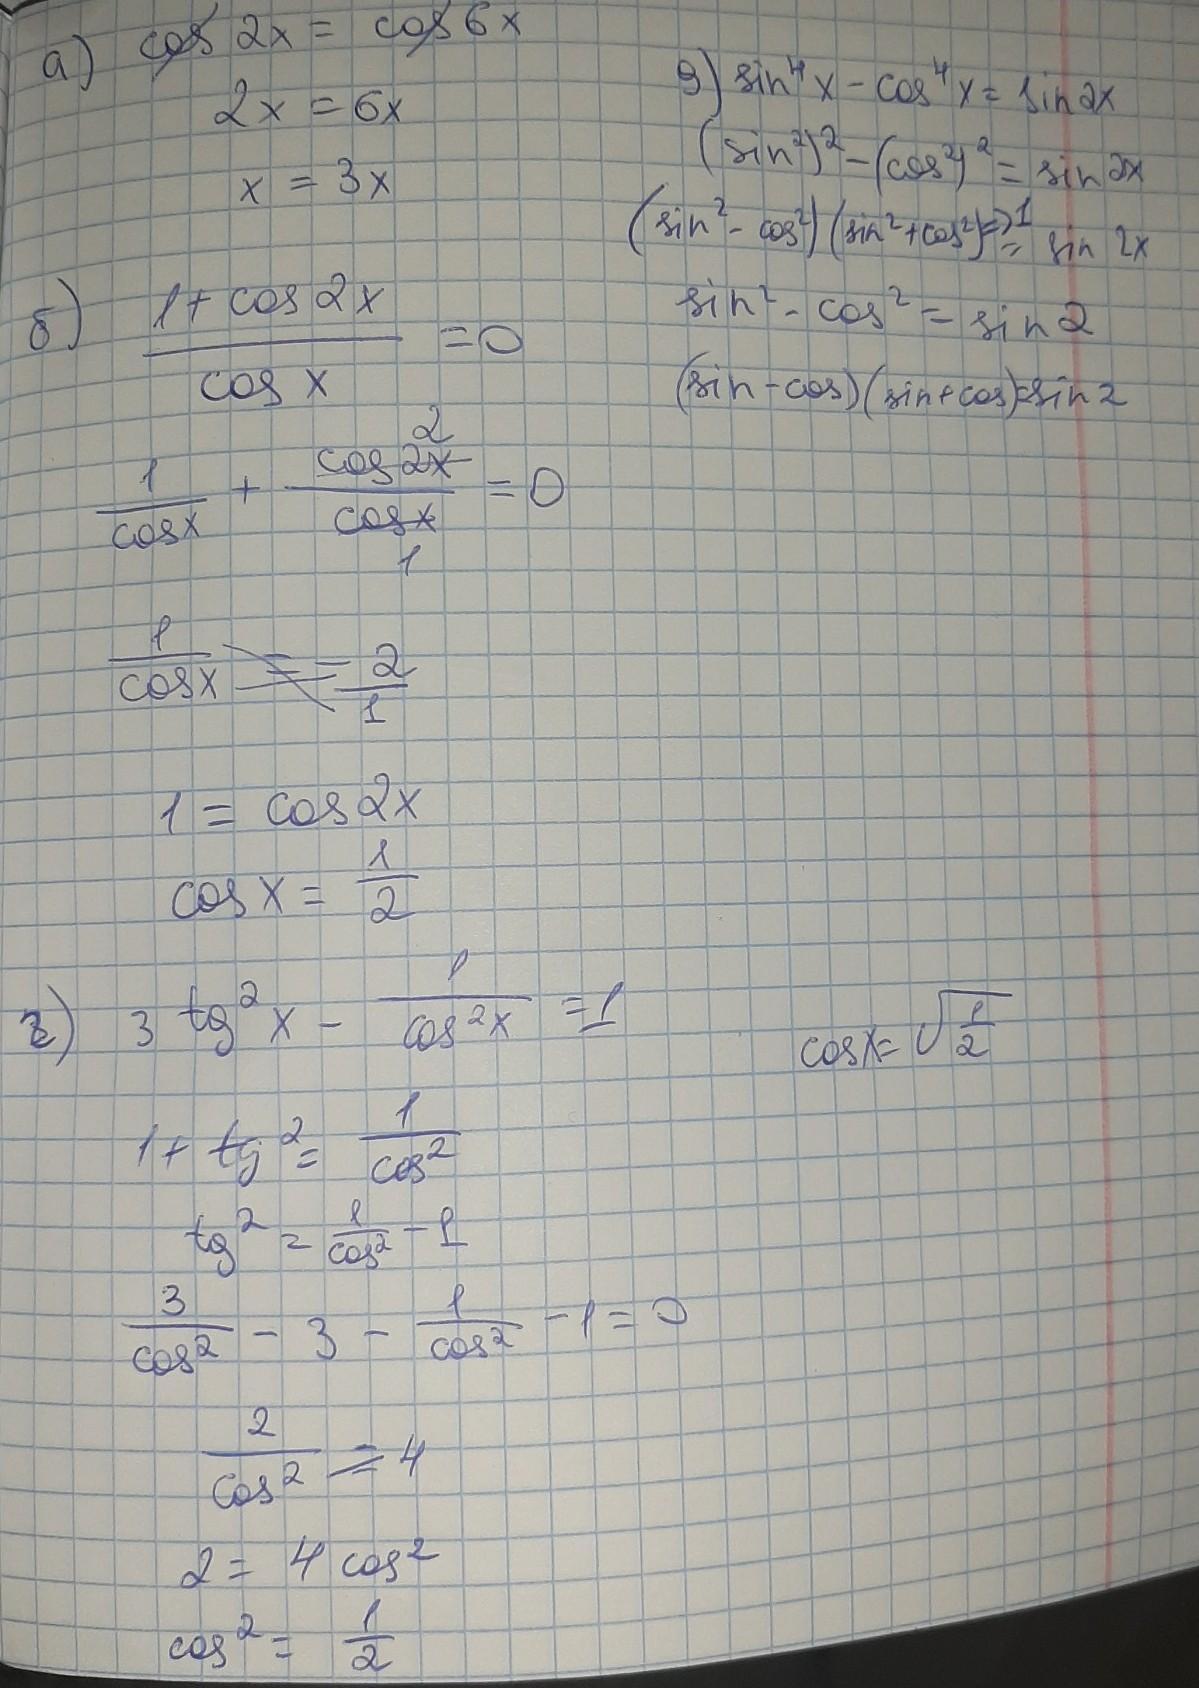 а) cos 2x = cos 6x
2x = 6x
x = 3x
б) (1 + cos 2x)/(cos x) = 0
1/(cos x) + (cos 2x)/(cos x) = 0
2
1
1/(cos x) = - 2/1
1 = cos 2x
cos x = 1/2
г) 3 tg²x - 1/(cos²x) = 1
1 + tg² = 1/cos²
tg² = 1/cos² - 1
3/cos² - 3 - 1/cos² - 1 = 0
2/cos² = 4
2 = 4 cos²
cos² = 1/2
cos x = √(1/2)
д) sin⁴x - cos⁴x = sin 2x
(sin²)² - (cos²)² = sin 2x
(sin² - cos²)(sin² + cos²)=>1 = sin 2x
sin² - cos² = sin 2
(sin - cos)(sin + cos) = sin 2